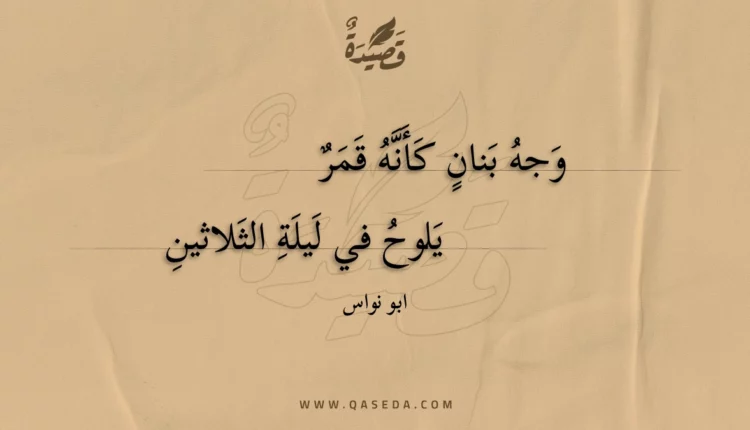 قَصِيدَةٌ
وَجهُ بَنانٍ كَأَنَّهُ قَمَرٌ
يَلوحُ في لَيلَةِ الثَلاثينِ
ابو نواس
WWW.QASEDA.COM